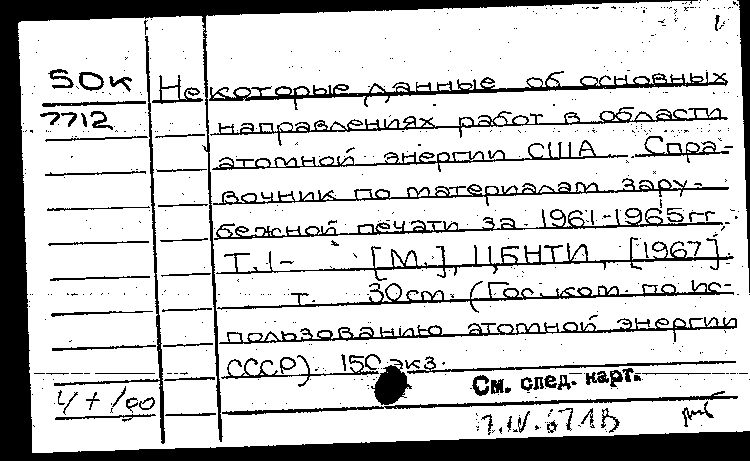 50К Некоторые данные об основных
7712 направлениях работ в области
атомной энергии США Спра-
вочник по материалам зару-
бежной печати за 1961-1965гг.
Т.1- [М.], ЦБНТИ, [1967].
т. 30см. (Гос. ком. по ис-
пользованию атомной энергии
СССР). 150 экз.
См. след. карт.